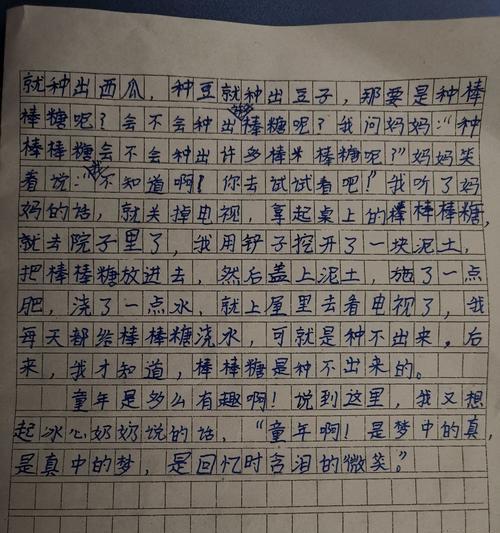 就种出西瓜，种豆就种出豆子，那要是种棒
棒糖呢？会不会种出棒糖呢？我问妈妈："种
棒棒糖会不会种出许多棒米棒糖呢？"妈妈笑
着说："我不知道啊！你去试试看吧！"我听了妈
妈的话，就关掉电视，拿起桌上的棒棒棒糖，
就去院子里了，我用铲子挖开了一块泥土，
把棒棒糖放进去，然后盖上泥土，施了一点
肥，浇了一点水，就上屋里去看电视了，我
每天都给棒棒糖浇水，可就是种不出来，后
来，我才知道，棒棒糖是种不出来的。
童年是多么有趣啊！说到这里，我又想
起冰心奶奶说的话，"童年啊！是梦中的真，
是真中的梦，是回忆时含泪的微笑。"